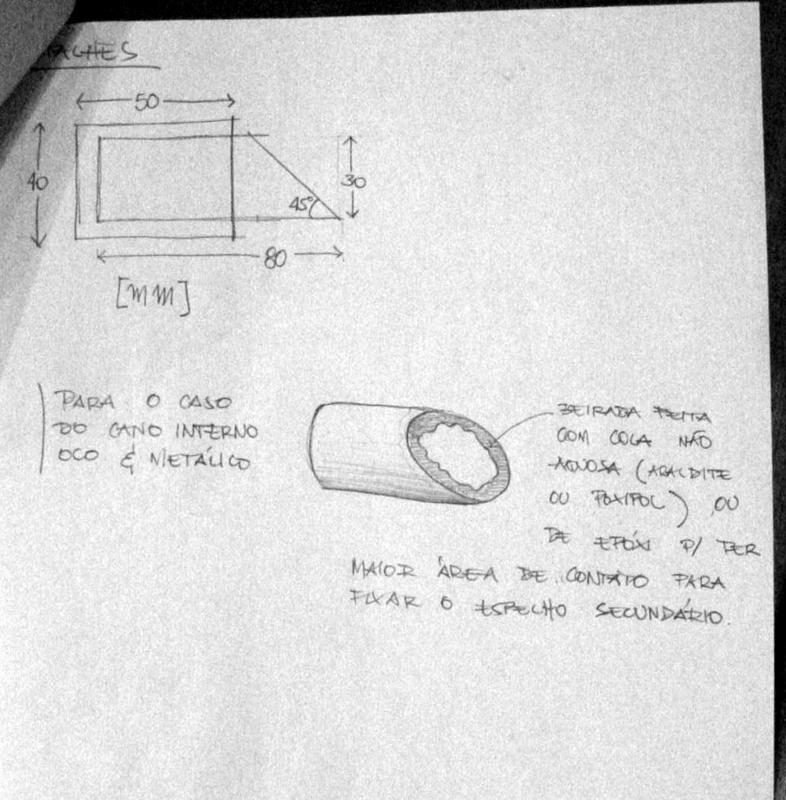 50
40
30
45°
80
[mm]
PARA O CASO
DO CANO INTERNO
OCO & METÁLICO
BEIRADA FEITA
COM COLA NÃO
AQUOSA (ARALDITE
OU POXIPOL) OU
DE EPÓXI P/ TER
MAIOR ÁREA DE CONTATO PARA
FIXAR O ESPELHO SECUNDÁRIO.